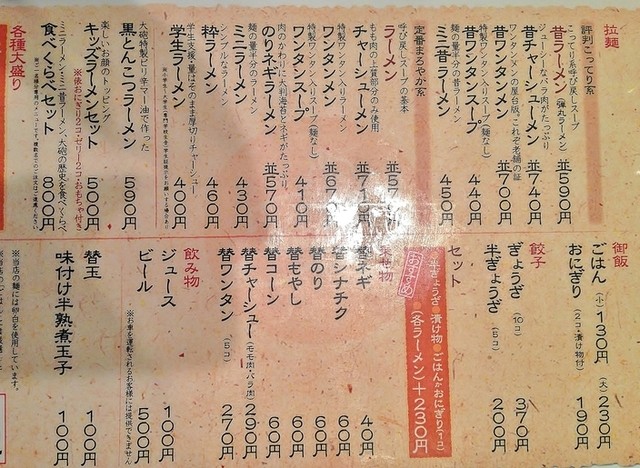 拉麺
評判こってり系
こってり系呼び戻しスープ
昔ラーメン(弾丸ラーメン) 並590円
ジューシーなバラ肉がたっぷり
昔チャーシューメン 並740円
昔ワンタンメンの屋台版、これぞ老舗の証
昔ワンタンメン 並700円
特製ワンタン入りスープ(麺なし)
昔ワンタンスープ 440円
麺の量半分の昔ラーメン
ミニ昔ラーメン 450円
定番まろやか系
呼び戻しスープの基本
ラーメン 並57
もも肉の上質部分のみ使用
チャーシューメン 並71 円
特製ワンタン入りラーメン
ワンタンメン 並67 円
特製ワンタン入りスープ(麺なし)
ワンタンスープ 410円
肉のかわりに大判海苔とネギがたっぷり
のりネギラーメン 並570円
麺の量半分のラーメン
ミニラーメン 430円
シンプルなラーメン
粋ラーメン 460円
学生支援・量はそのまま厚切りチャーシュー
学生ラーメン 400円
大砲特製ピリ辛マー油で作った
黒とんこつラーメン 590円
楽しいお顔のトッピング
キッズラーメンセット 500円
※依おにぎり2コ・ゼリー2コ・おもちゃ付き
ミニラーメン・ミニ昔ラーメン、大砲の歴史を食べくらべ
食べくらべセット 800円
各種大盛り
御飯
ごはん (小)130円 (大)230円
おにぎり (2コ・漬け物付) 190円
餃子
ぎょうざ (10コ) 370円
半ぎょうざ (5コ) 200円
セット
半ぎょうざ●漬け物●ごはんかおにぎり(1コ)
(各ラーメン)+230円
おすすめ
替ネギ 40円
替シナチク 60円
替のり 60円
替もやし 60円
替コーン 60円
替チャーシュー (モモ肉・バラ肉) 290円
替ワンタン (5コ) 270円
飲み物
ジュース 100円
ビール 500円
※お車を運転されるお客様には提供できません
替玉 100円
味付け半熟煮玉子 100円
※当店の麺には卵白を使用しています。